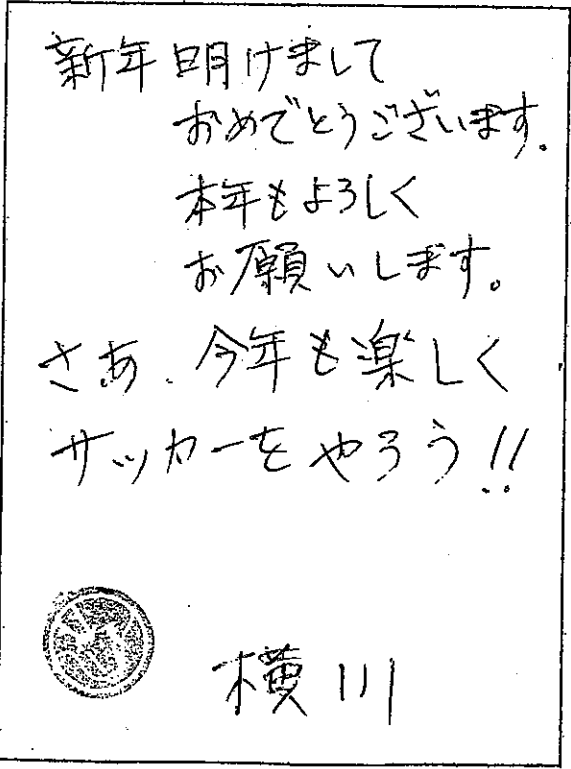 新年明けまして
おめでとうございます。
本年もよろしく
お願いします。
さあ、今年も楽しく
サッカーをやろう!!
横川